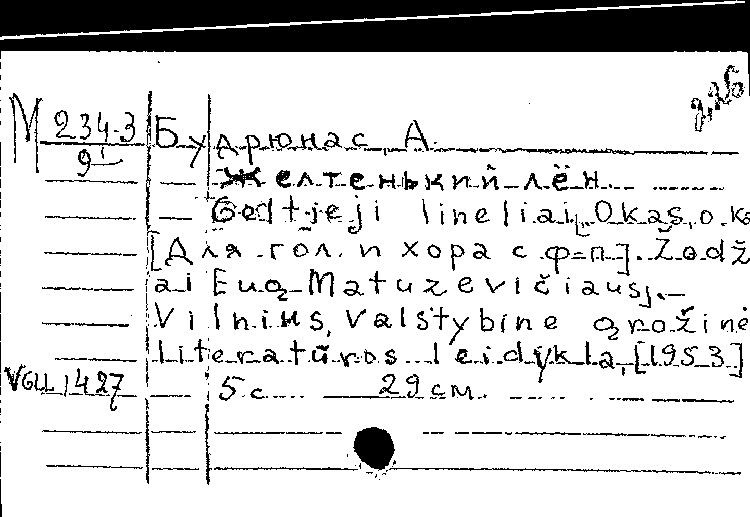 М 234-3 Будрюнас, А.
9
Желтенький лён
Geltieji lineliai. Okas, о.ка
[Для гол. и хора с ф-п]. Žodž
ai Eug. Matuzevičiaus].
Vilnius, Valstybine grožinė
literatūros leidykla, [1953]
VGLL 1427 5 с 29 см.